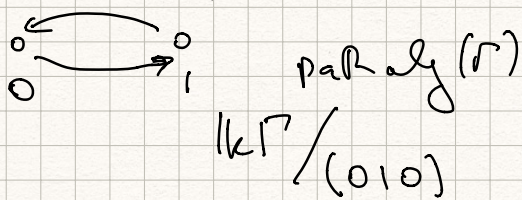 0 1
path alg (Γ)
𝕜Γ/(010)